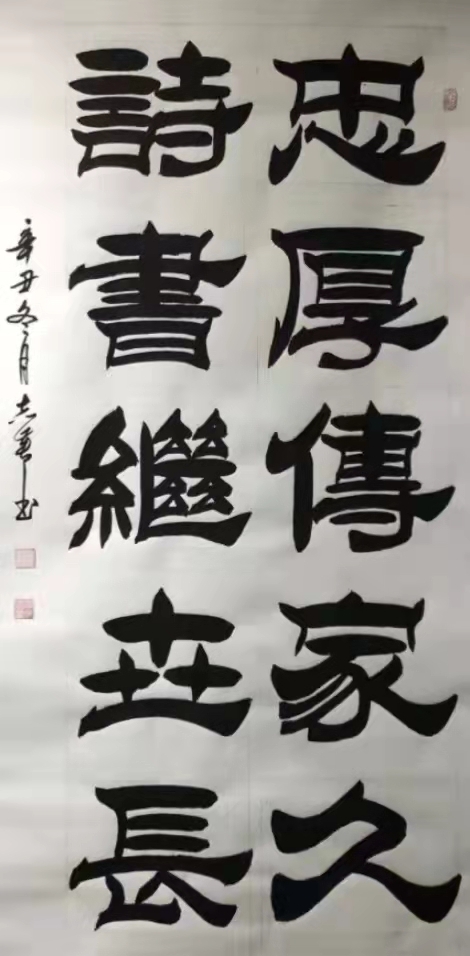 忠厚傳家久
詩書繼世長
辛丑冬月志華書